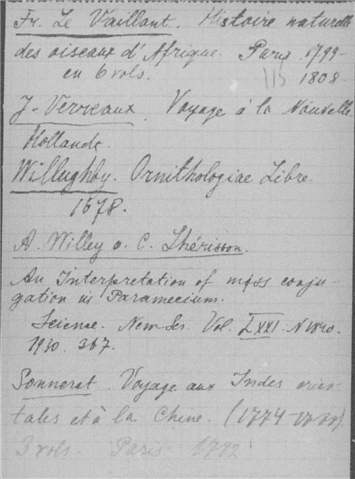 Fr. Le Vaillant. Histoire naturelle
des oiseaux d'Afrique. Paris 1799-
en 6 vols. 1808.
J. Verreaux. Voyage à la Nouvelle
Hollande.
Willughby. Ornithologiae Libre
1678.
A. Willey a. C. Lhérisson.
An Interpretation of mass conju-
gation in Paramecium.
Science. New Ser. Vol. LXXI. N
1930. 367.
Sonnerat. Voyage aux Indes orien-
tales et à la Chine. (1774-
3 vols. Paris 1792